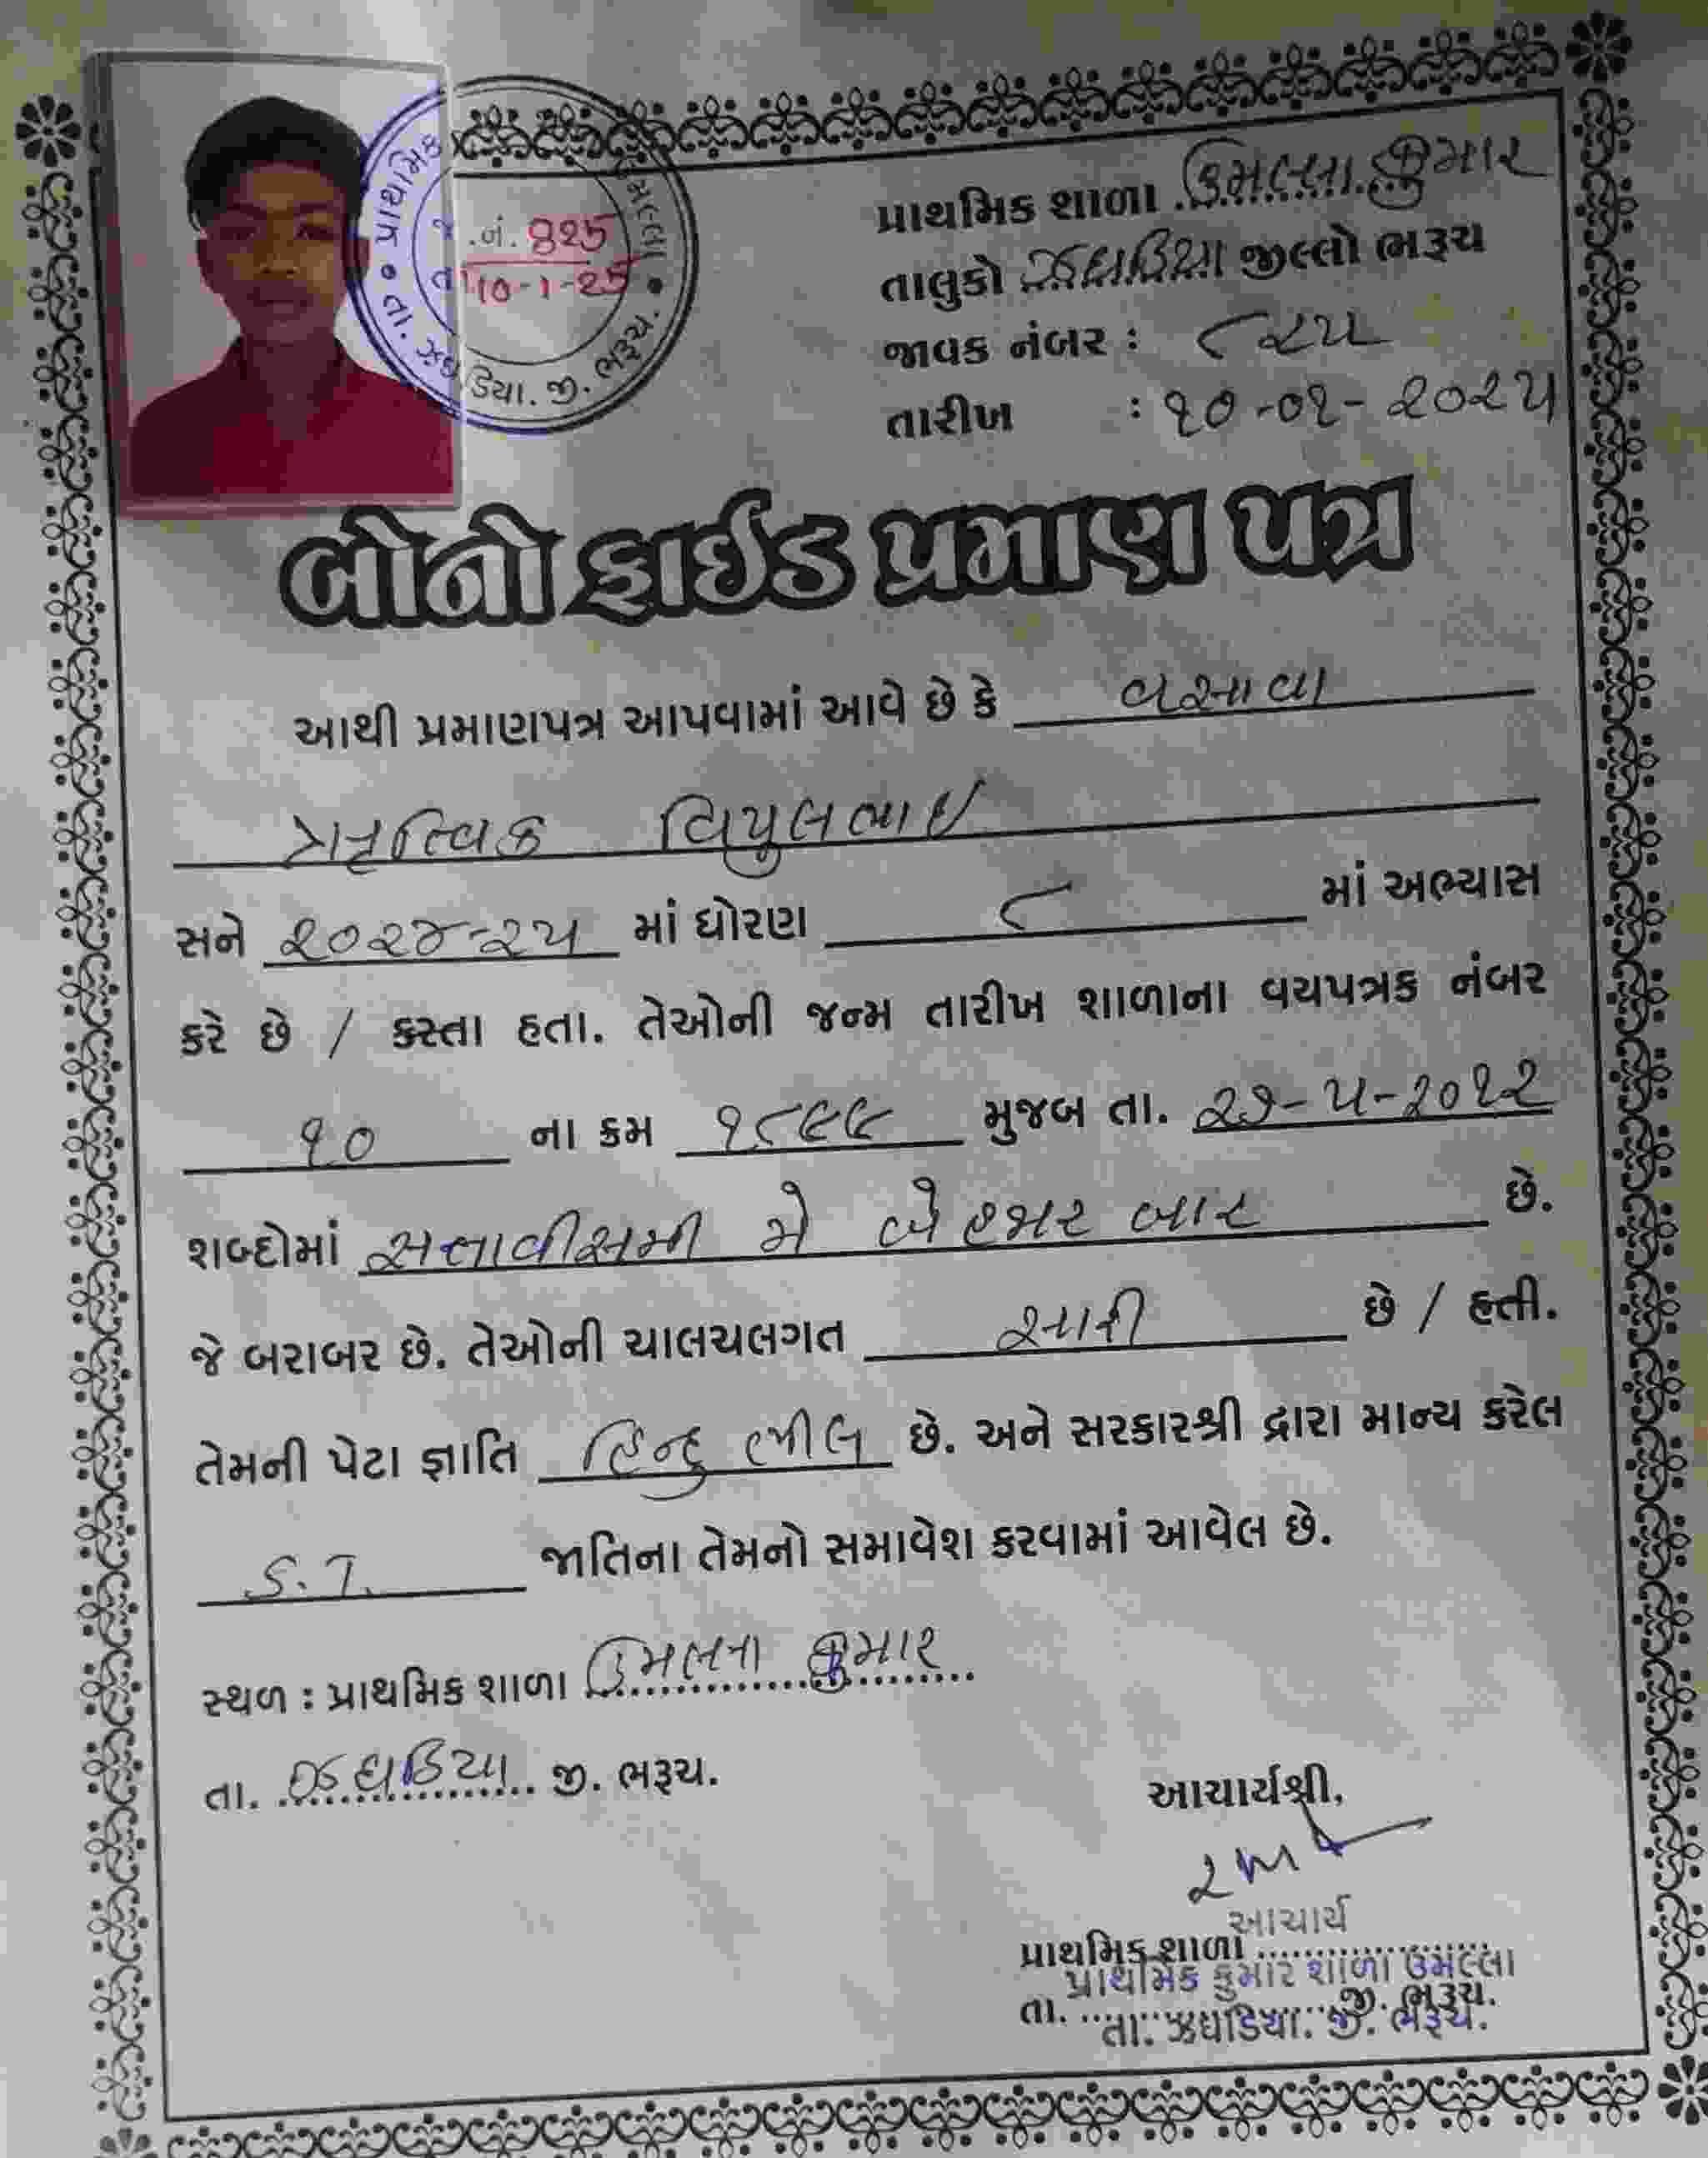 પ્રાથમિક શાળા ઉમલ્લા કુમાર
તાલુકો ઝઘડિયા જીલ્લો ભરૂચ
જાવક નંબર : ૮૨૫
તારીખ : ૧૦-૦૧-૨૦૨૫
પ્રાથમિક ઉમલ્લા • તા. ઝઘડિયા. જી. ભરૂચ. •
જા.નં. 825
તા 10-1-25
બોનોફાઈડ પ્રમાણ પત્ર
આથી પ્રમાણપત્ર આપવામાં આવે છે કે વસાવા
વિપુલભાઇ
સને ૨૦૨૪-૨૫ માં ધોરણ ૮ માં અભ્યાસ
કરે છે / કસ્તા હતા. તેઓની જન્મ તારીખ શાળાના વયપત્રક નંબર
૧૦ ના ક્રમ ૧૮૯૯ મુજબ તા. ૨૭-૫-૨૦૧૨
શબ્દોમાં સત્તાવીસમી મે બે હજાર બાર છે.
જે બરાબર છે. તેઓની ચાલચલગત સારી છે / હતી.
તેમની પેટા જ્ઞાતિ હિન્દુ ભીલ છે. અને સરકારશ્રી દ્વારા માન્ય કરેલ
S.T. જાતિના તેમનો સમાવેશ કરવામાં આવેલ છે.
સ્થળ : પ્રાથમિક શાળા ઉમલ્લા કુમાર
તા. ઝઘડિયા જી. ભરૂચ.
આચાર્યશ્રી,
આચાર્ય
પ્રાથમિક શાળા
પ્રાથમિક કુમાર શાળા ઉમલ્લા
તા. જી. ભરૂચ.
તા. ઝઘડિયા. જી. ભરૂચ.